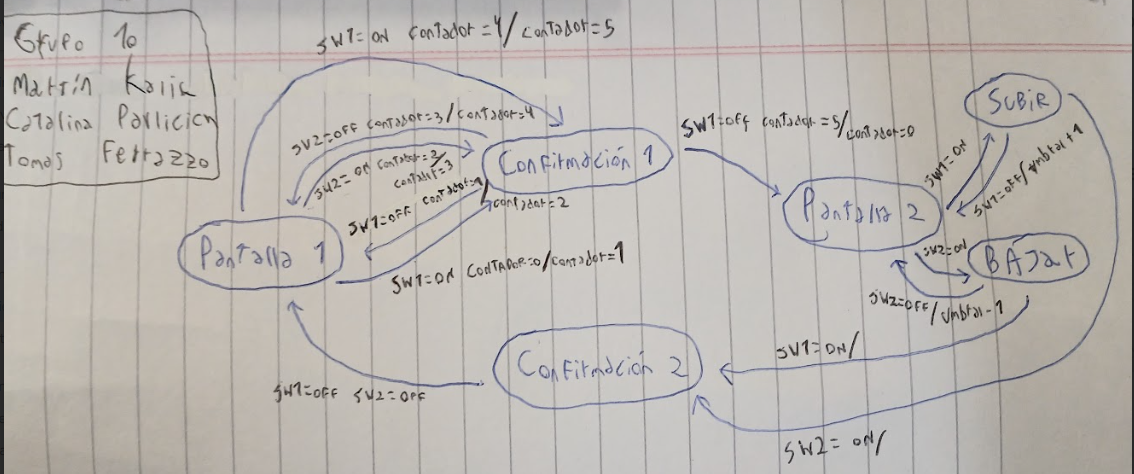 Grupo 10
Martín Kalin
Catalina
Tomas Ferrazzo
SW1=ON Contador=4/Contador=5
SW2=OFF Contador=3/Contador=4
SW2=ON Contador=2/
Contador=3
SW1=OFF Contador=1
/Contador=2
SW1=ON CONTADOR=0/Contador=1
Pantalla 1
Confirmación 1
SW1=OFF Contador=5/
Contador=0
Pantalla 2
SUBIR
SW1=ON
SW1=OFF/Umbral+1
SW2=ON
BAJar
SW2=OFF/Umbral-1
SW1=ON/
Confirmación 2
SW2=ON/
SW1=OFF SW2=OFF